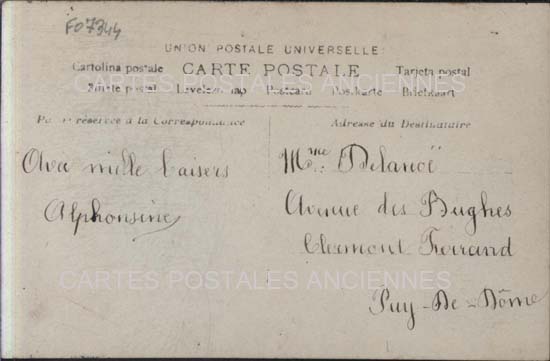 F07344
UNION POSTALE UNIVERSELLE
Cartolina postale CARTE POSTALE Tarjeta postal
postal Postcard Postkarte
Partie réservée à la Correspondance
Adresse du Destinataire
CARTES POSTALES ANCIENNES
Avec mille baisers
Alphonsine
Mme Delanoë
Avenue des Bughes
Clermont Ferrand
Puy-De-Dôme
CARTES POSTALES ANCIENNES